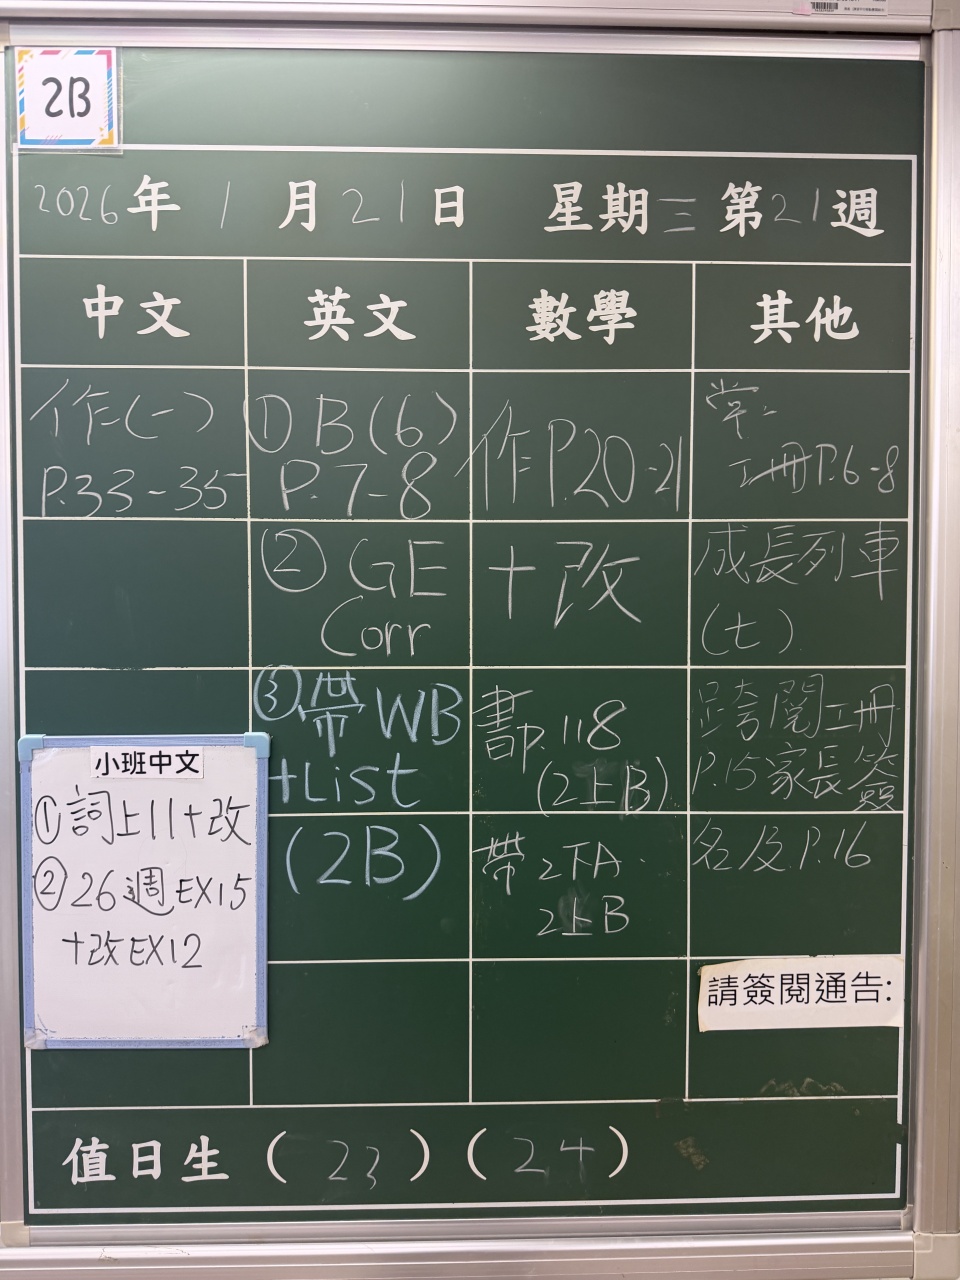 2B
2026年1月21日 星期三 第21週
中文 英文 數學 其他
作(一)
P.33-35
① B(6)
P.7-8
② GE
Corr
③ 帶 WB
+List
(2B)
作P.20-21
+改
書p.118
(2上B)
帶 2下A
2上B
常
工冊P.6-8
成長列車
(七)
跨閱工冊
P.15家長簽
名及P.16
小班中文
①詞上11+改
②26週EX15
+改EX12
請簽閱通告:
值日生 (23)(24)